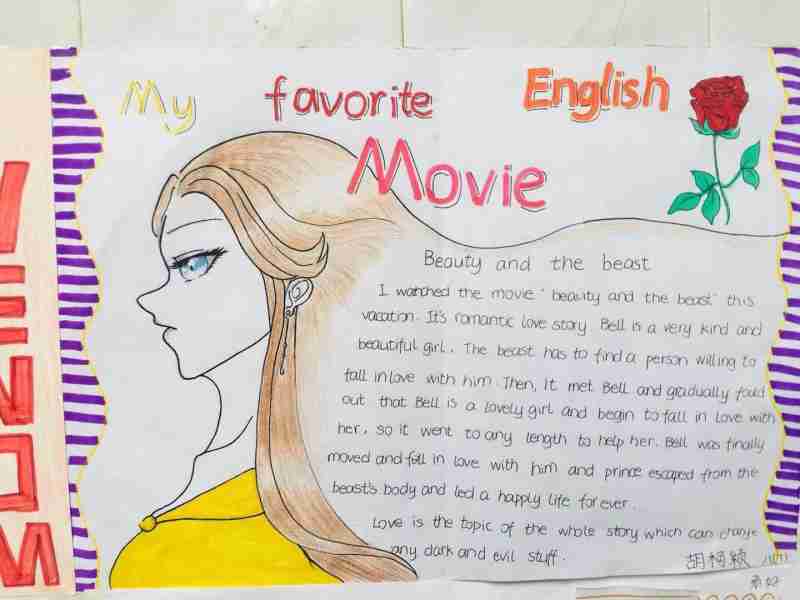 My favorite English
Movie
Beauty and the beast
I watched the movie "beauty and the beast" this
vacation. It's romantic love story. Bell is a very kind and
beautiful girl. The beast has to find a person willing to
fall in love with him. Then, It met Bell and gradually fould
out that Bell is a lovely girl and begin to fall in love with
her, so it went to any length to help her. Bell was finally
moved and fell in love with him and prince escaped from the
beast's body and led a happly life for ever.
Love is the topic of the whole story which can change
any dark and evil stuff.
胡杨颖
VENOM